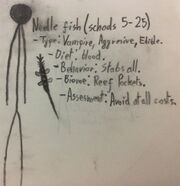 Needle fish (schools 5-25)
-Type: Vampire, Aggressive, Edible.
-Diet: Blood.
-Behavior: Stabs all.
-Biome: Reef Pockets.
-Assessment: Avoid at all costs.